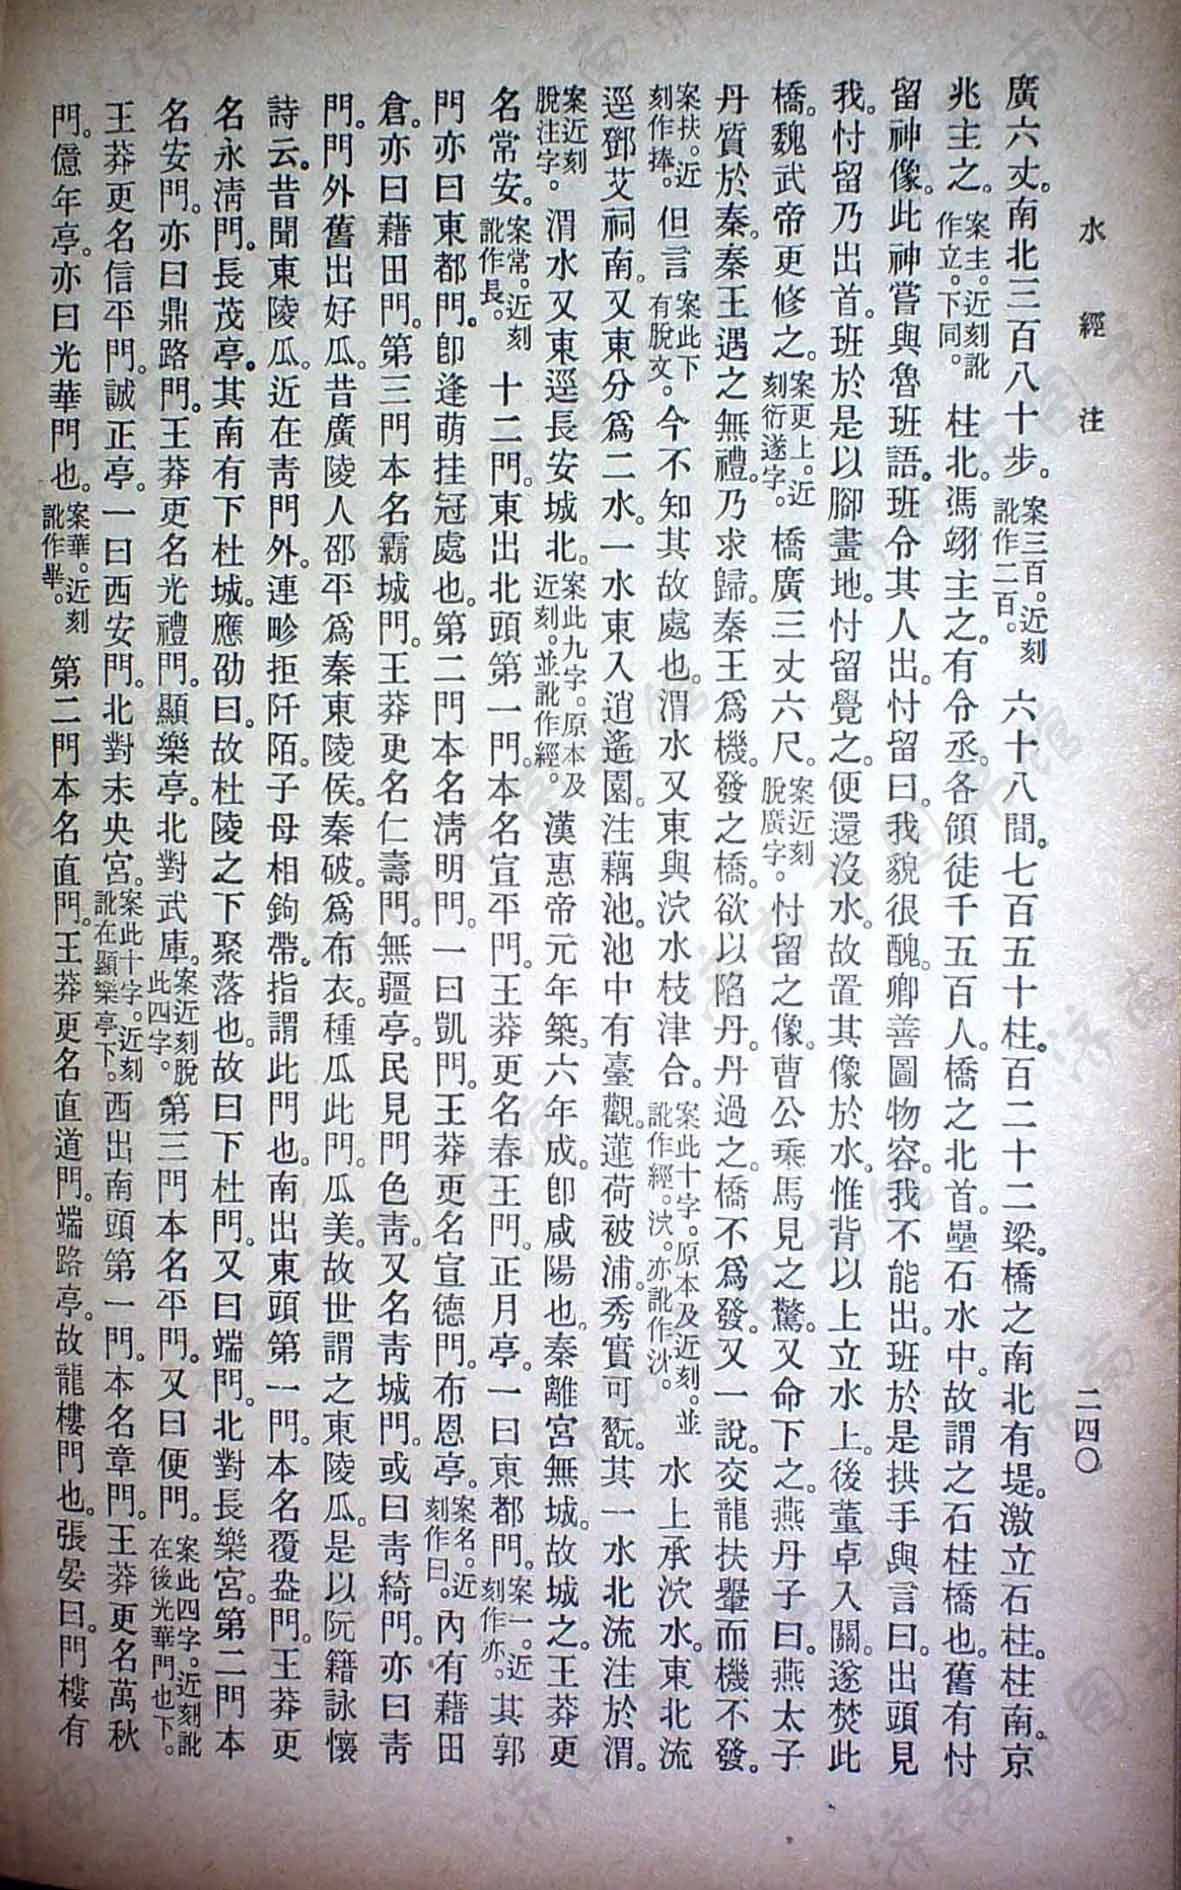 水經注
二四〇
廣六丈。南北三百八十步。案三百。近刻訛作二百。六十八間。七百五十柱。百二十二梁。橋之南北有堤。激立石柱。柱南。京
兆主之。案主。近刻訛作立。下同。柱北。馮翊主之。有令丞。各領徒千五百人。橋之北首。壘石水中。故謂之石柱橋也。舊有忖
留神像。此神嘗與魯班語。班令其人出。忖留曰。我貌很醜。卿善圖物容。我不能出。班於是拱手與言曰。出頭見
我。忖留乃出首。班於是以腳畫地。忖留覺之。便還沒水。故置其像於水。惟背以上立水上。後董卓入關。遂焚此
橋。魏武帝更修之。案更上。近刻衍遂字。橋廣三丈六尺。案近刻脫廣字。忖留之像。曹公乘馬見之驚。又命下之。燕丹子曰。燕太子
丹質於秦。秦王遇之無禮。乃求歸。秦王爲機。發之橋。欲以陷丹。丹過之。橋不爲發。又一說。交龍扶轝而機不發。
案扶。近刻作捧。但言案此下有脫文。今不知其故處也。渭水又東與沇水枝津合。案此十字。原本及近刻。並訛作經。沇。亦訛作沈。水上承沇水。東北流
逕鄧艾祠南。又東分爲二水。一水東入逍遙園。注藕池。池中有臺觀。蓮荷被浦。秀實可翫。其一水北流注於渭。
案近刻脫注字。渭水又東逕長安城北。案此九字。原本及近刻。並訛作經。漢惠帝元年築。六年成。卽咸陽也。秦離宮無城。故城之。王莽更
名常安。案常。近刻訛作長。十二門。東出北頭第一門。本名宣平門。王莽更名春王門。正月亭。一曰東都門。案一。近刻作亦。其郭
門亦曰東都門。卽逢萌挂冠處也。第二門本名淸明門。一曰凱門。王莽更名宣德門。布恩亭。案名。近刻作曰。內有藉田
倉。亦曰藉田門。第三門本名霸城門。王莽更名仁壽門。無疆亭。民見門色靑。又名靑城門。或曰靑綺門。亦曰靑
門。門外舊出好瓜。昔廣陵人邵平爲秦東陵侯。秦破。爲布衣。種瓜此門。瓜美。故世謂之東陵瓜。是以阮籍詠懷
詩云。昔聞東陵瓜。近在靑門外。連畛拒阡陌。子母相鉤帶。指謂此門也。南出東頭第一門。本名覆盎門。王莽更
名永淸門。長茂亭。其南有下杜城。應劭曰。故杜陵之下聚落也。故曰下杜門。又曰端門。北對長樂宮。第二門本
名安門。亦曰鼎路門。王莽更名光禮門。顯樂亭。北對武庫。案近刻脫此四字。第三門本名平門。又曰便門。案此四字。近刻訛在後光華門也下。
王莽更名信平門。誠正亭。一曰西安門。北對未央宮。案此十字。近刻訛在顯樂亭下。西出南頭第一門。本名章門。王莽更名萬秋
門。億年亭。亦曰光華門也。案華。近刻訛作畢。第二門本名直門。王莽更名直道門。端路亭。故龍樓門也。張晏曰。門樓有